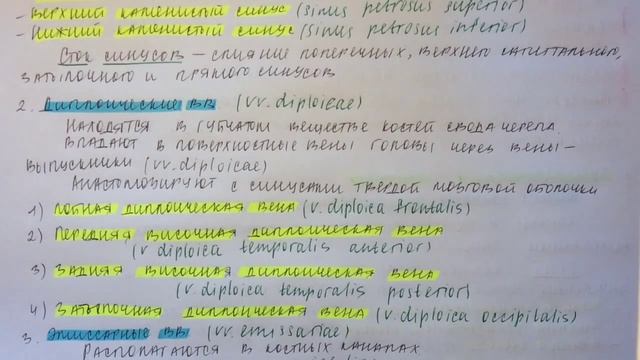 - Верхний каменистый синус (sinus petrosus superior)
- Нижний каменистый синус (sinus petrosus inferior)
Сток синусов – слияние поперечных, верхнего сагиттального,
затылочного и прямого синусов
2. Диплоические вв (vv. diploicae)
Находятся в губчатом веществе костей свода черепа.
Впадают в поверхностные вены головы через вены –
выпускники (vv. diploicae)
Анастомозируют с синусами твердой мозговой оболочки
1) Лобная диплоическая вена (v. diploica frontalis)
2) Передняя височная диплоическая вена
(v diploica temporalis anterior)
3) Задняя височная диплоическая вена
(v. diploica temporalis posterior)
4) Затылочная диплоическая вена (v. diploica occipitalis)
3. Эмиссарные вв (vv. emissariae)
Располагаются в костных каналах